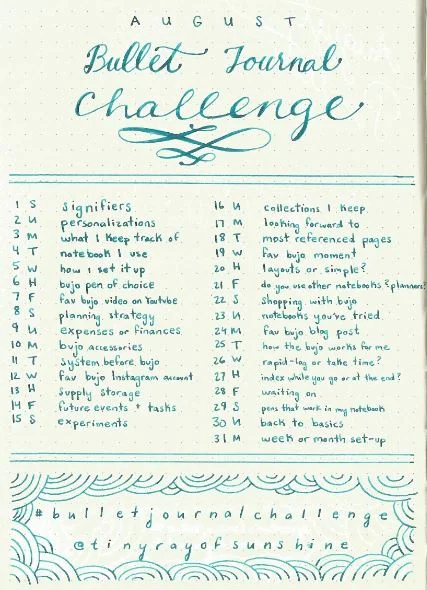 AUGUST
Bullet Journal
challenge
1 S signifiers
2 U personalizations
3 M what I keep track of
4 T notebook I use
5 W how I set it up
6 H bujo pen of choice
7 F fav bujo video on Youtube
8 S planning strategy
9 U expenses or finances
10 M bujo accessories
11 T system before bujo
12 W fav bujo Instagram account
13 H supply storage
14 F future events + tasks
15 S experiments
16 U collections I keep
17 M looking forward to
18 T most referenced pages
19 W fav bujo moment
20 H layouts or simple?
21 F do you use other notebooks? planners?
22 S shopping with bujo
23 U notebooks you've tried
24 M fav bujo blog post
25 T how the bujo works for me
26 W rapid-log or take time?
27 H index while you go or at the end?
28 F waiting on
29 S pens that work in my notebook
30 U back to basics
31 M week or month set-up
#bulletjournalchallenge
@tinyrayofsunshine